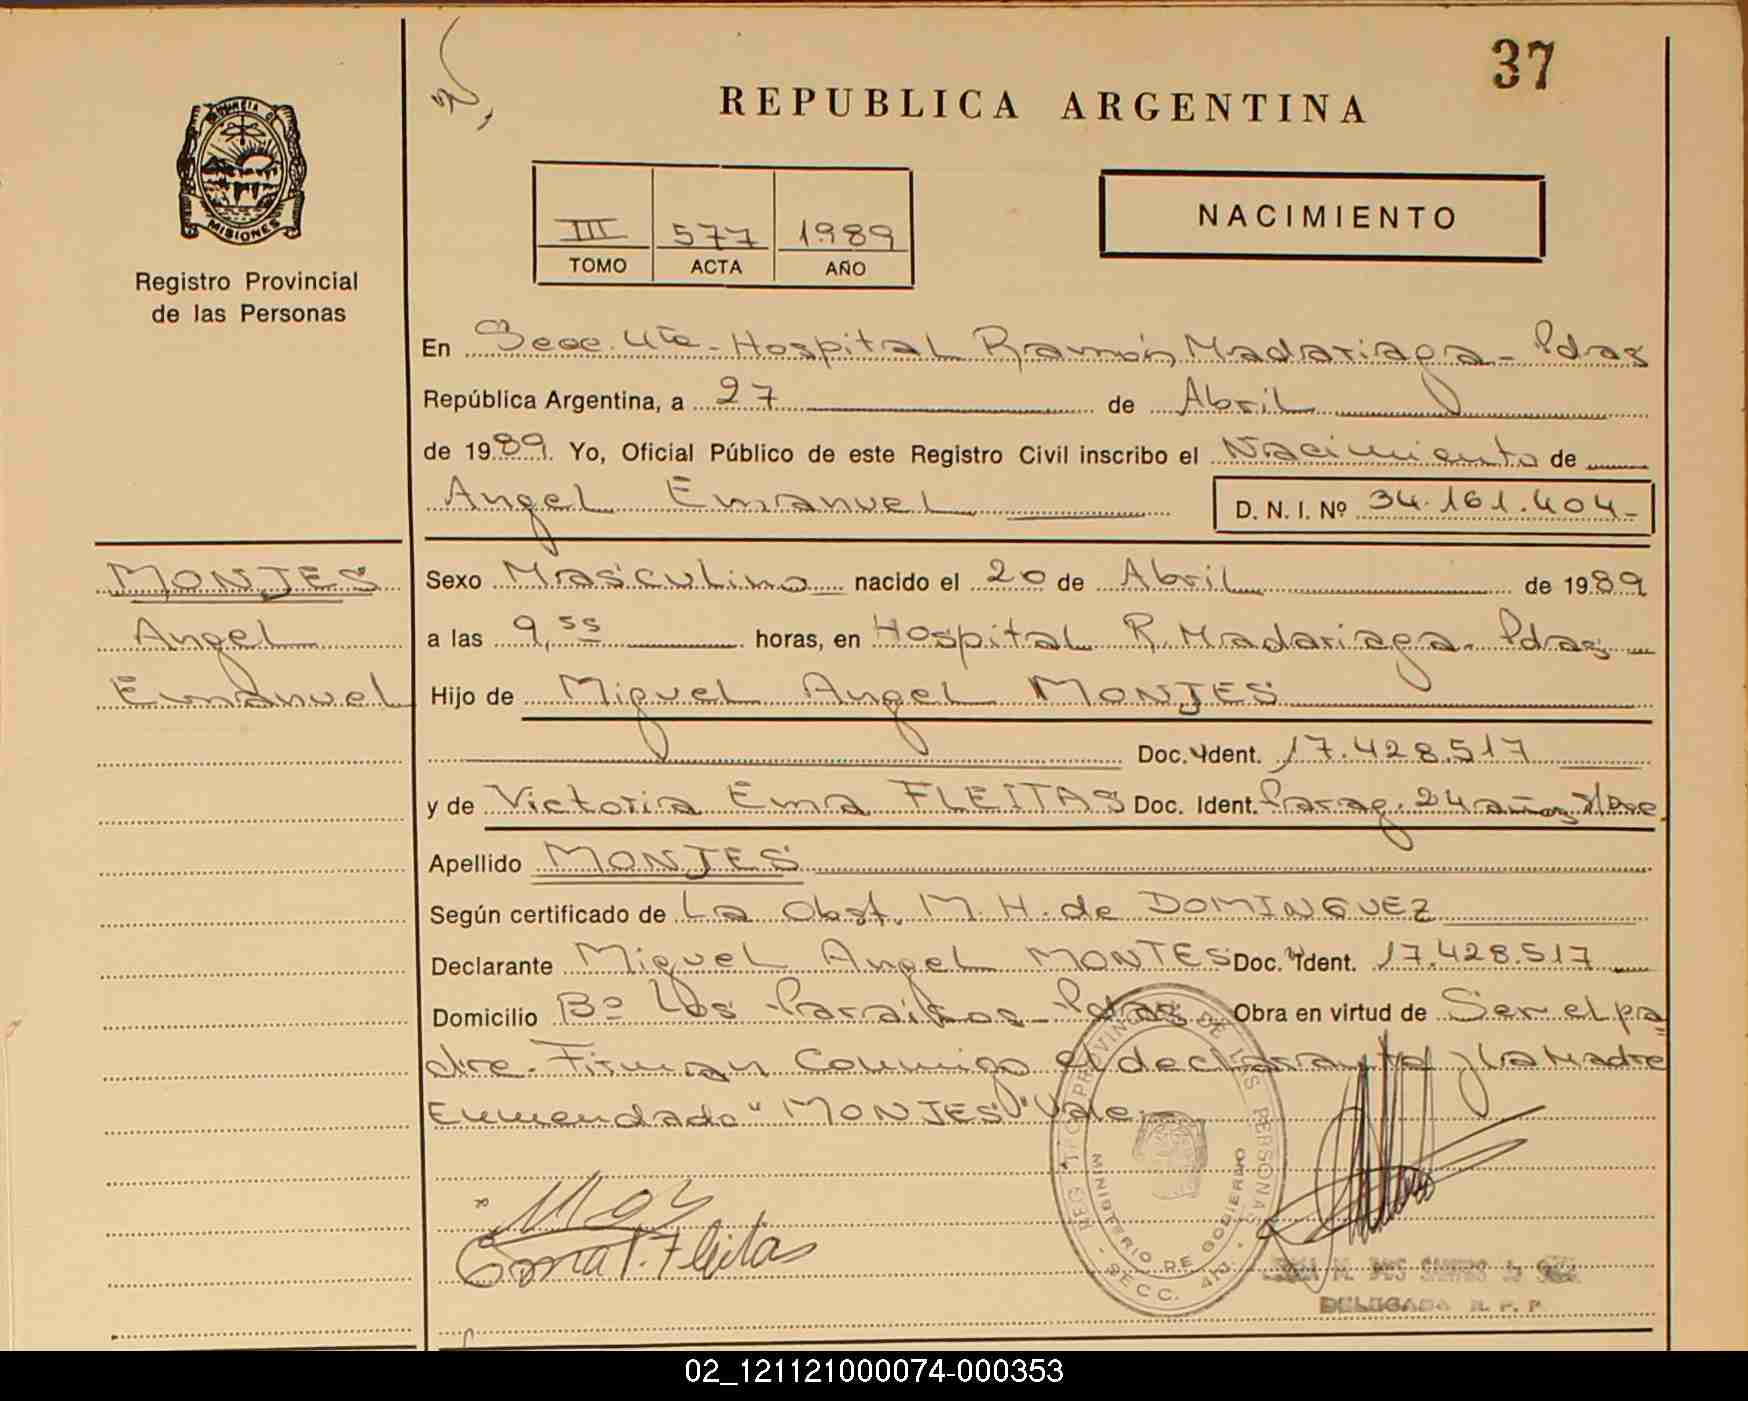 37
REPUBLICA ARGENTINA
PROVINCIA DE
MISIONES
Registro Provincial
de las Personas
III 577 1989
TOMO ACTA AÑO
NACIMIENTO
En Secc. 4ta - Hospital Ramón Madariaga - Pdas
República Argentina, a 27 de Abril
de 1989. Yo, Oficial Público de este Registro Civil inscribo el Nacimiento de
Angel Emanuel D. N. I. Nº 34.161.404-
MONJES
Angel
Emanuel
Sexo Masculino nacido el 20 de Abril de 1989
a las 9,55 horas, en Hospital R. Madariaga - Pdas
Hijo de Miguel Angel MONJES
Doc. Ident. 17.428.517
y de Victoria Ema FLEITAS Doc. Ident. Parag. 24 años
Apellido MONJES
Según certificado de La Obst. M. H. de DOMINGUEZ
Declarante Miguel Angel MONTES Doc. Ident. 17.428.517
Domicilio Bº Los Paraisos - Pdas Obra en virtud de Ser el pa=
dre - Firman Conmigo el declarante y la Madre
Enmendado "MONJES" Vale -
REG PROVINCIAL DE LAS PERSONAS
MINISTERIO DE GOBIERNO
SECC. 4ta.
Ema V. Fleitas
M. DOS SANTOS de
DELEGADA R. P. P.
02_121121000074-000353